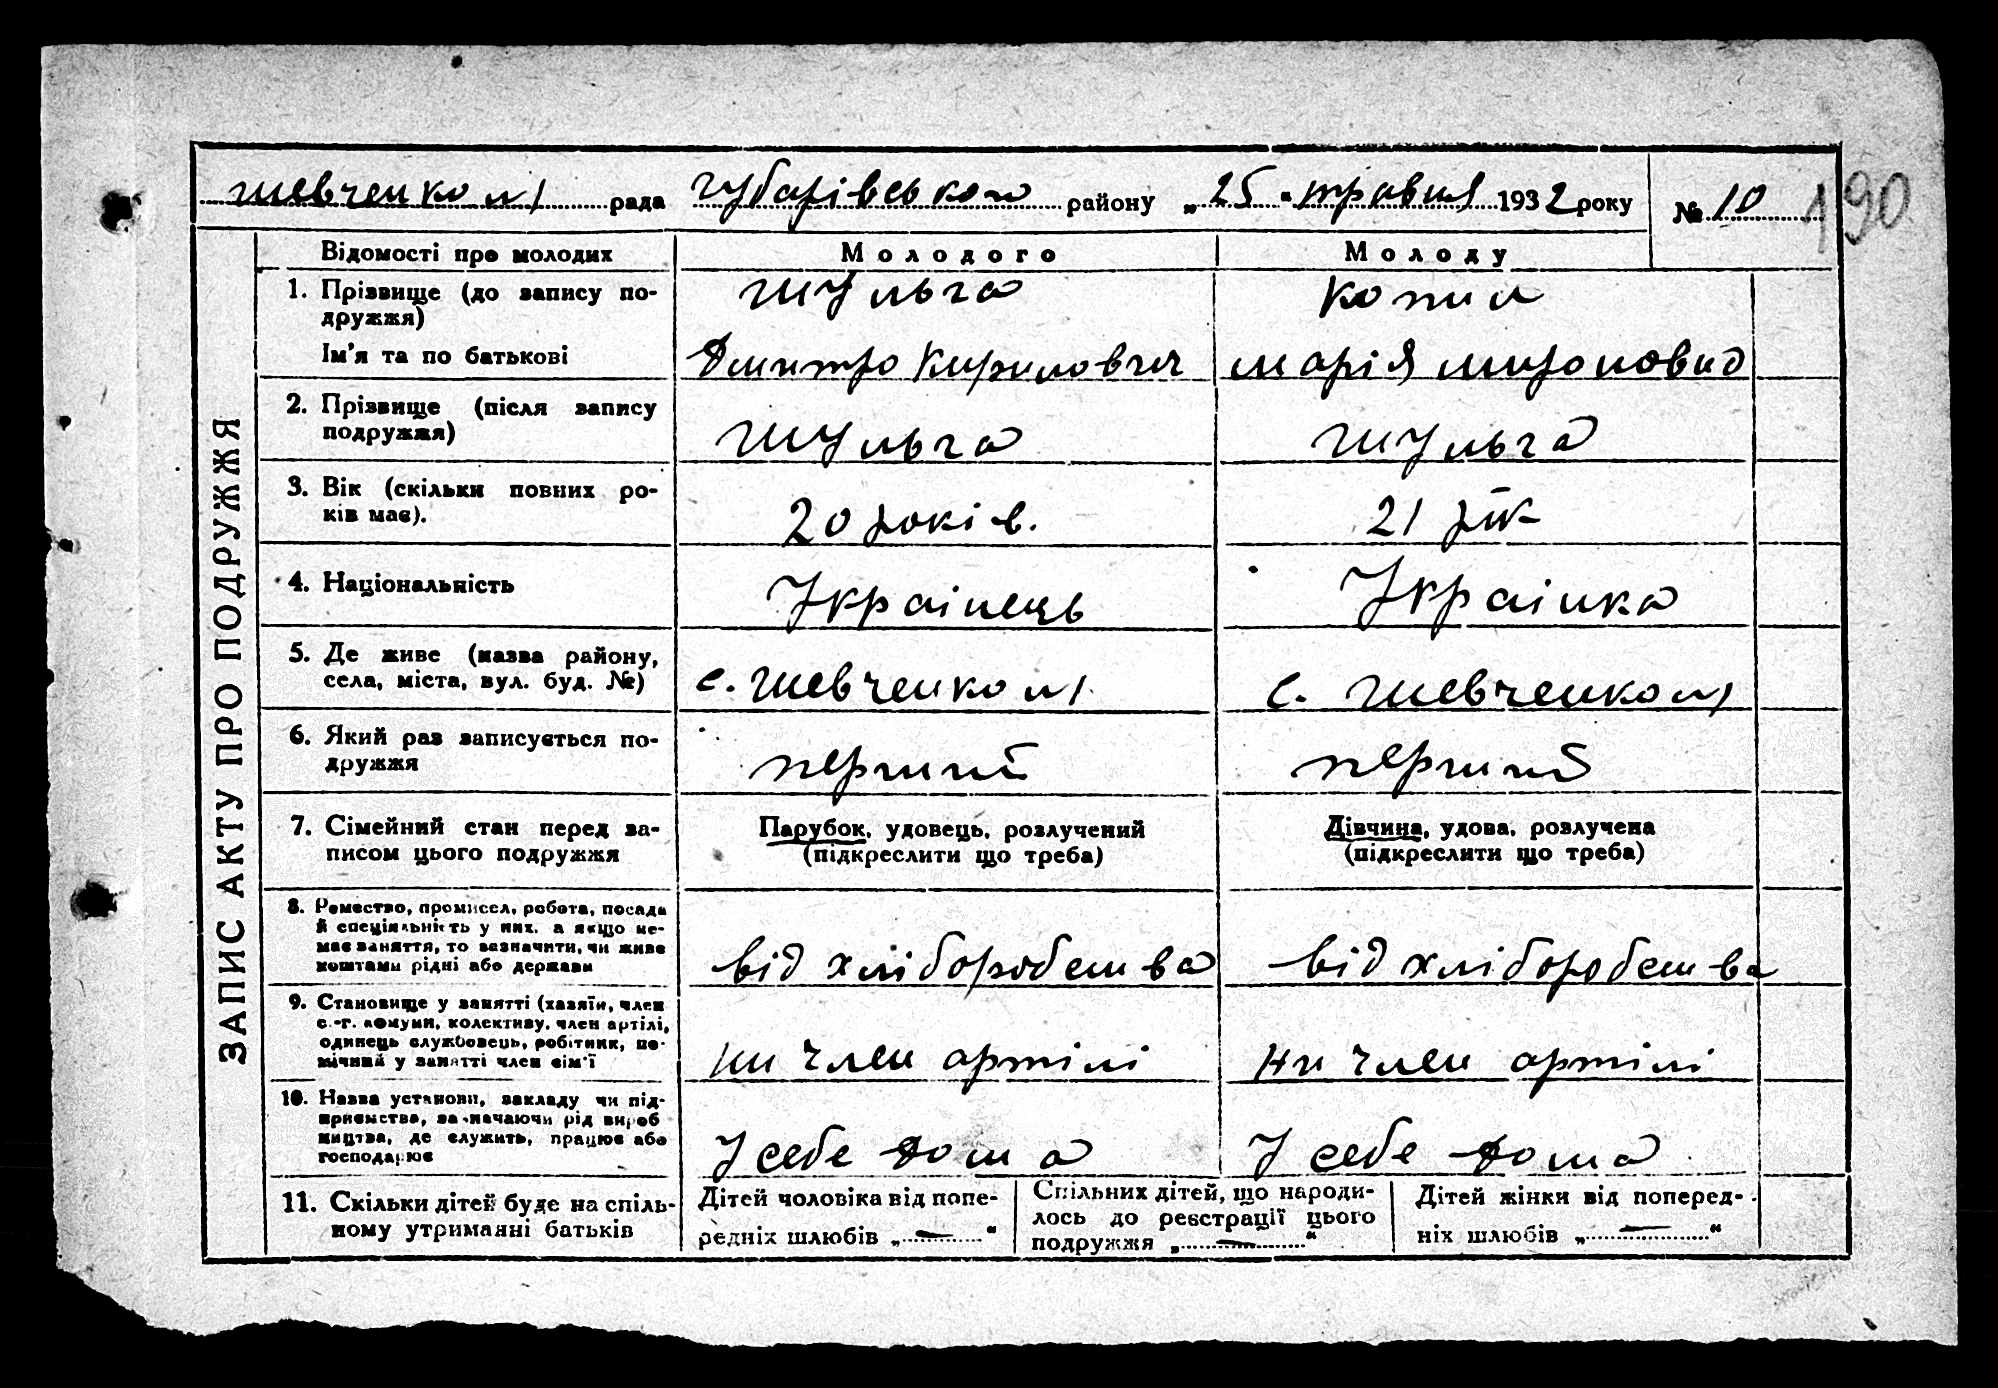 Шевченко №1 рада Чубарівського району „25" травня 1932 року № 10
190
ЗАПИС АКТУ ПРО ПОДРУЖЖЯ
Відомості про молодих Молодого Молоду
1. Прізвище (до запису по-
дружжя) Шульга Копил
Ім'я та по батькові Дмитро Кирилович Марія Мироновна
2. Прізвище (після запису
подружжя) Шульга Шульга
3. Вік (скільки повних ро-
ків має). 20 років. 21 рік
4. Національність Українець Українка
5. Де живе (назва району,
села, міста, вул. буд. №) с. Шевченко №1 с. Шевченко №1
6. Який раз записується по-
дружжя перший перший
7. Сімейний стан перед за- Парубок, удовець, розлучений Дівчина, удова, розлучена
писом цього подружжя (підкреслити що треба) (підкреслити що треба)
8. Ремество, промисел, робота, посада
й спеціяльність у них, а якщо не-
має заняття, то зазначити, чи живе
коштами рідні або держави від хліборобства від хліборобства
9. Становище у занятті (хазяїн, член
с.-г. комуни, колективу, член артілі,
одинець службовець, робітник, по-
мічний у занятті член сім'ї член артілі член артілі
10. Назва установи, закладу чи під-
приємства, зазначаючи рід вироб
ництва, де служить, працює або
господарює У себе дома У себе дома
11. Скільки дітей буде на спіль-
ному утриманні батьків
Дітей чоловіка від попе-
редніх шлюбів „—"
Спільних дітей, що народи-
лось до реєстрації цього
подружжя „—"
Дітей жінки від поперед-
ніх шлюбів „—"